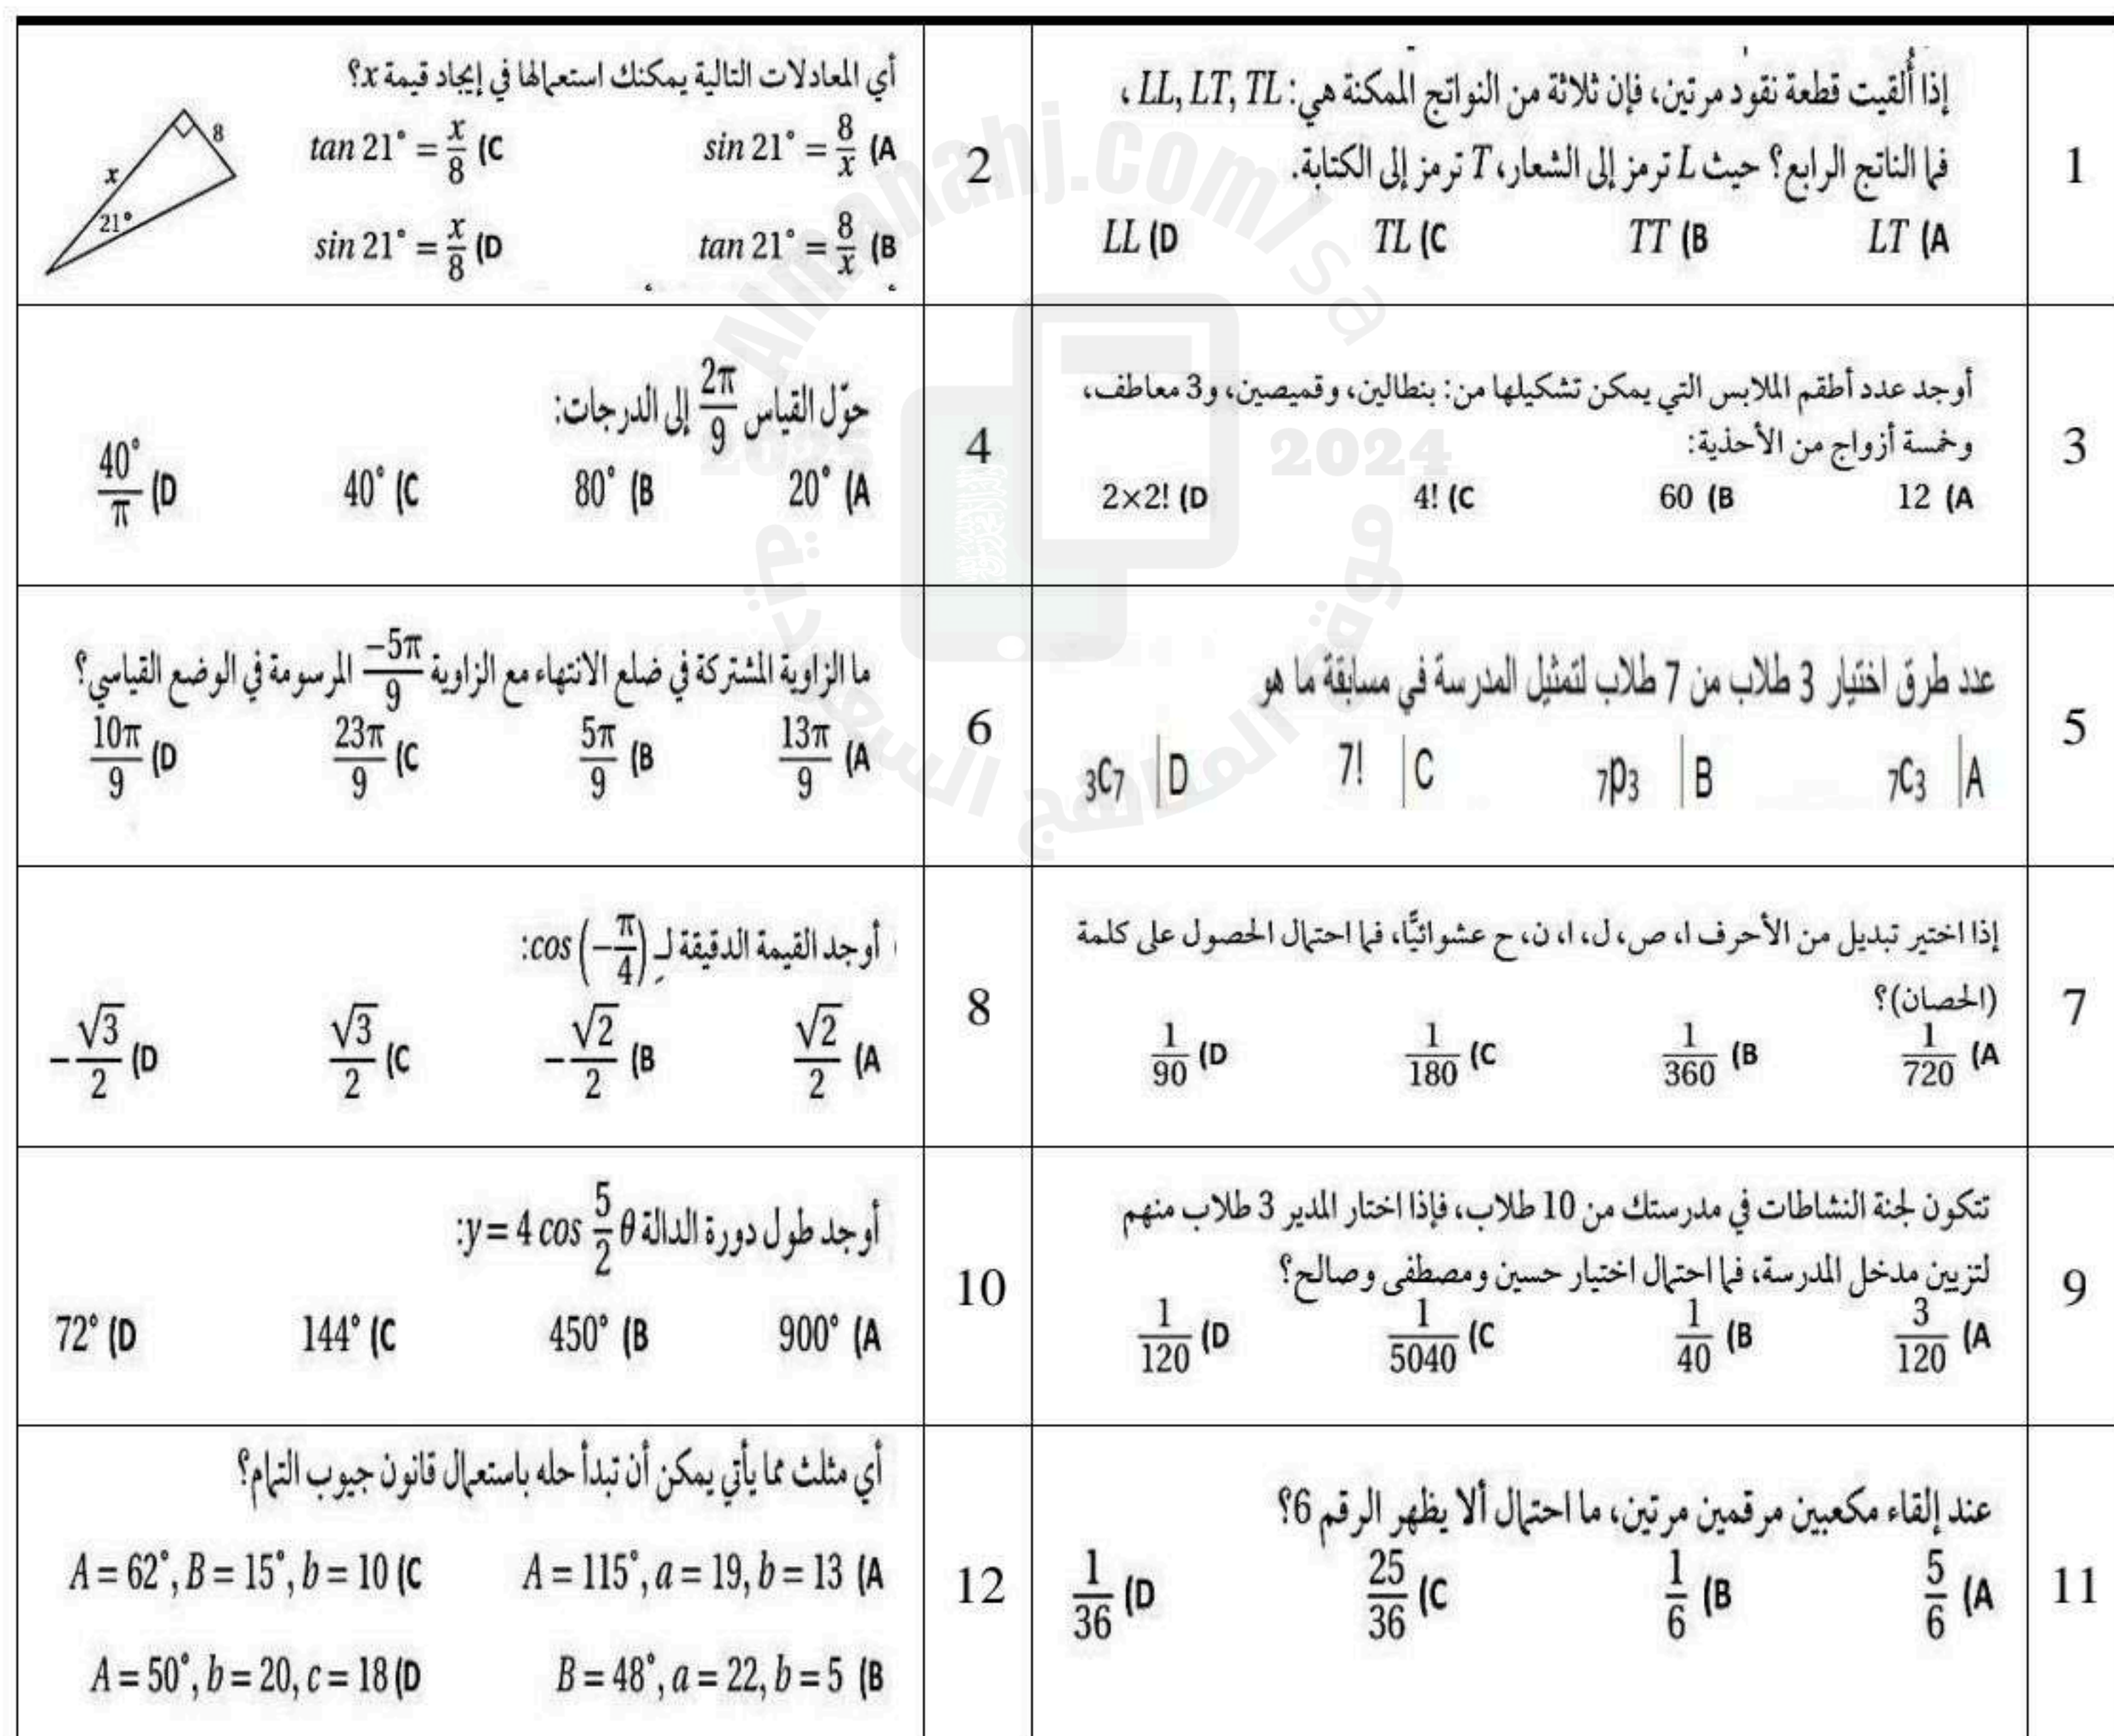 1
إذا أُلقيت قطعة نقود مرتين، فإن ثلاثة من النواتج الممكنة هي: LL, LT, TL ،
فما الناتج الرابع؟ حيث L ترمز إلى الشعار، T ترمز إلى الكتابة.
A) LT B) TT C) TL D) LL
2
أي المعادلات التالية يمكنك استعمالها في إيجاد قيمة x؟
A) sin 21° = 8/x C) tan 21° = x/8
B) tan 21° = 8/x D) sin 21° = x/8
8
x
21°
3
أوجد عدد أطقم الملابس التي يمكن تشكيلها من: بنطالين، وقميصين، و3 معاطف،
وخمسة أزواج من الأحذية:
A) 12 B) 60 C) 4! D) 2×2!
4
حوّل القياس 2π/9 إلى الدرجات:
A) 20° B) 80° C) 40° D) 40°/π
5
عدد طرق اختيار 3 طلاب من 7 طلاب لتمثيل المدرسة في مسابقة ما هو
A ₇C₃ B ₇P₃ C 7! D ₃C₇
6
ما الزاوية المشتركة في ضلع الانتهاء مع الزاوية −5π/9 المرسومة في الوضع القياسي؟
A) 13π/9 B) 5π/9 C) 23π/9 D) 10π/9
7
إذا اختير تبديل من الأحرف ا، ص، ل، ا، ن، ح عشوائيًّا، فما احتمال الحصول على كلمة
(الحصان)؟
A) 1/720 B) 1/360 C) 1/180 D) 1/90
8
أوجد القيمة الدقيقة لـ cos (−π/4):
A) √2/2 B) −√2/2 C) √3/2 D) −√3/2
9
تتكون لجنة النشاطات في مدرستك من 10 طلاب، فإذا اختار المدير 3 طلاب منهم
لتزيين مدخل المدرسة، فما احتمال اختيار حسين ومصطفى وصالح؟
A) 3/120 B) 1/40 C) 1/5040 D) 1/120
10
أوجد طول دورة الدالة y = 4 cos 5/2 θ:
A) 900° B) 450° C) 144° D) 72°
11
عند إلقاء مكعبين مرقمين مرتين، ما احتمال ألا يظهر الرقم 6؟
A) 5/6 B) 1/6 C) 25/36 D) 1/36
12
أي مثلث مما يأتي يمكن أن تبدأ حله باستعمال قانون جيوب التمام؟
A) A = 115°, a = 19, b = 13 C) A = 62°, B = 15°, b = 10
B) B = 48°, a = 22, b = 5 D) A = 50°, b = 20, c = 18
Almanahj.com/sa
2024
موقع المناهج السعودية